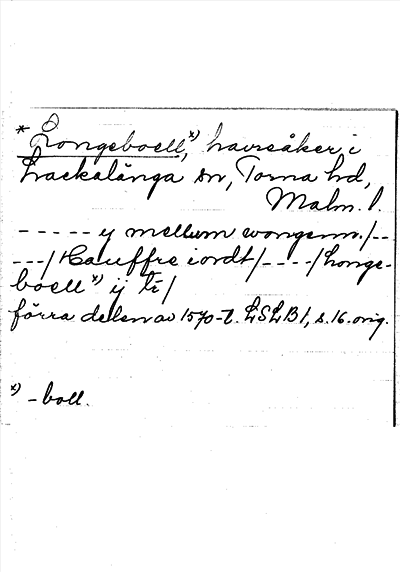 * Longeboell, x) havreåker i
Lackalänga sn, Torna hd,
Malm. l.
- - - - - y mellum wongenn./--
---/Hauffre iordt/----/longe-
boell x) ij ti/
förra delen av 1570-t. LSLB1, s. 16. orig.
x) -boll.